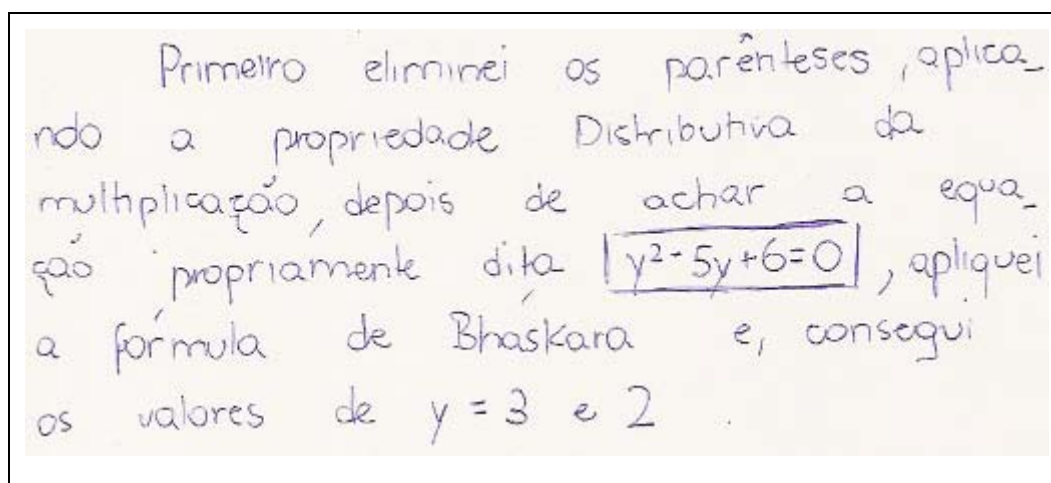 Primeiro eliminei os parênteses, aplica_
ndo a propriedade Distributiva da
multiplicação, depois de achar a equa_
ção propriamente dita y²-5y+6=0, apliquei
a fórmula de Bháskara e, consegui
os valores de y = 3 e 2.